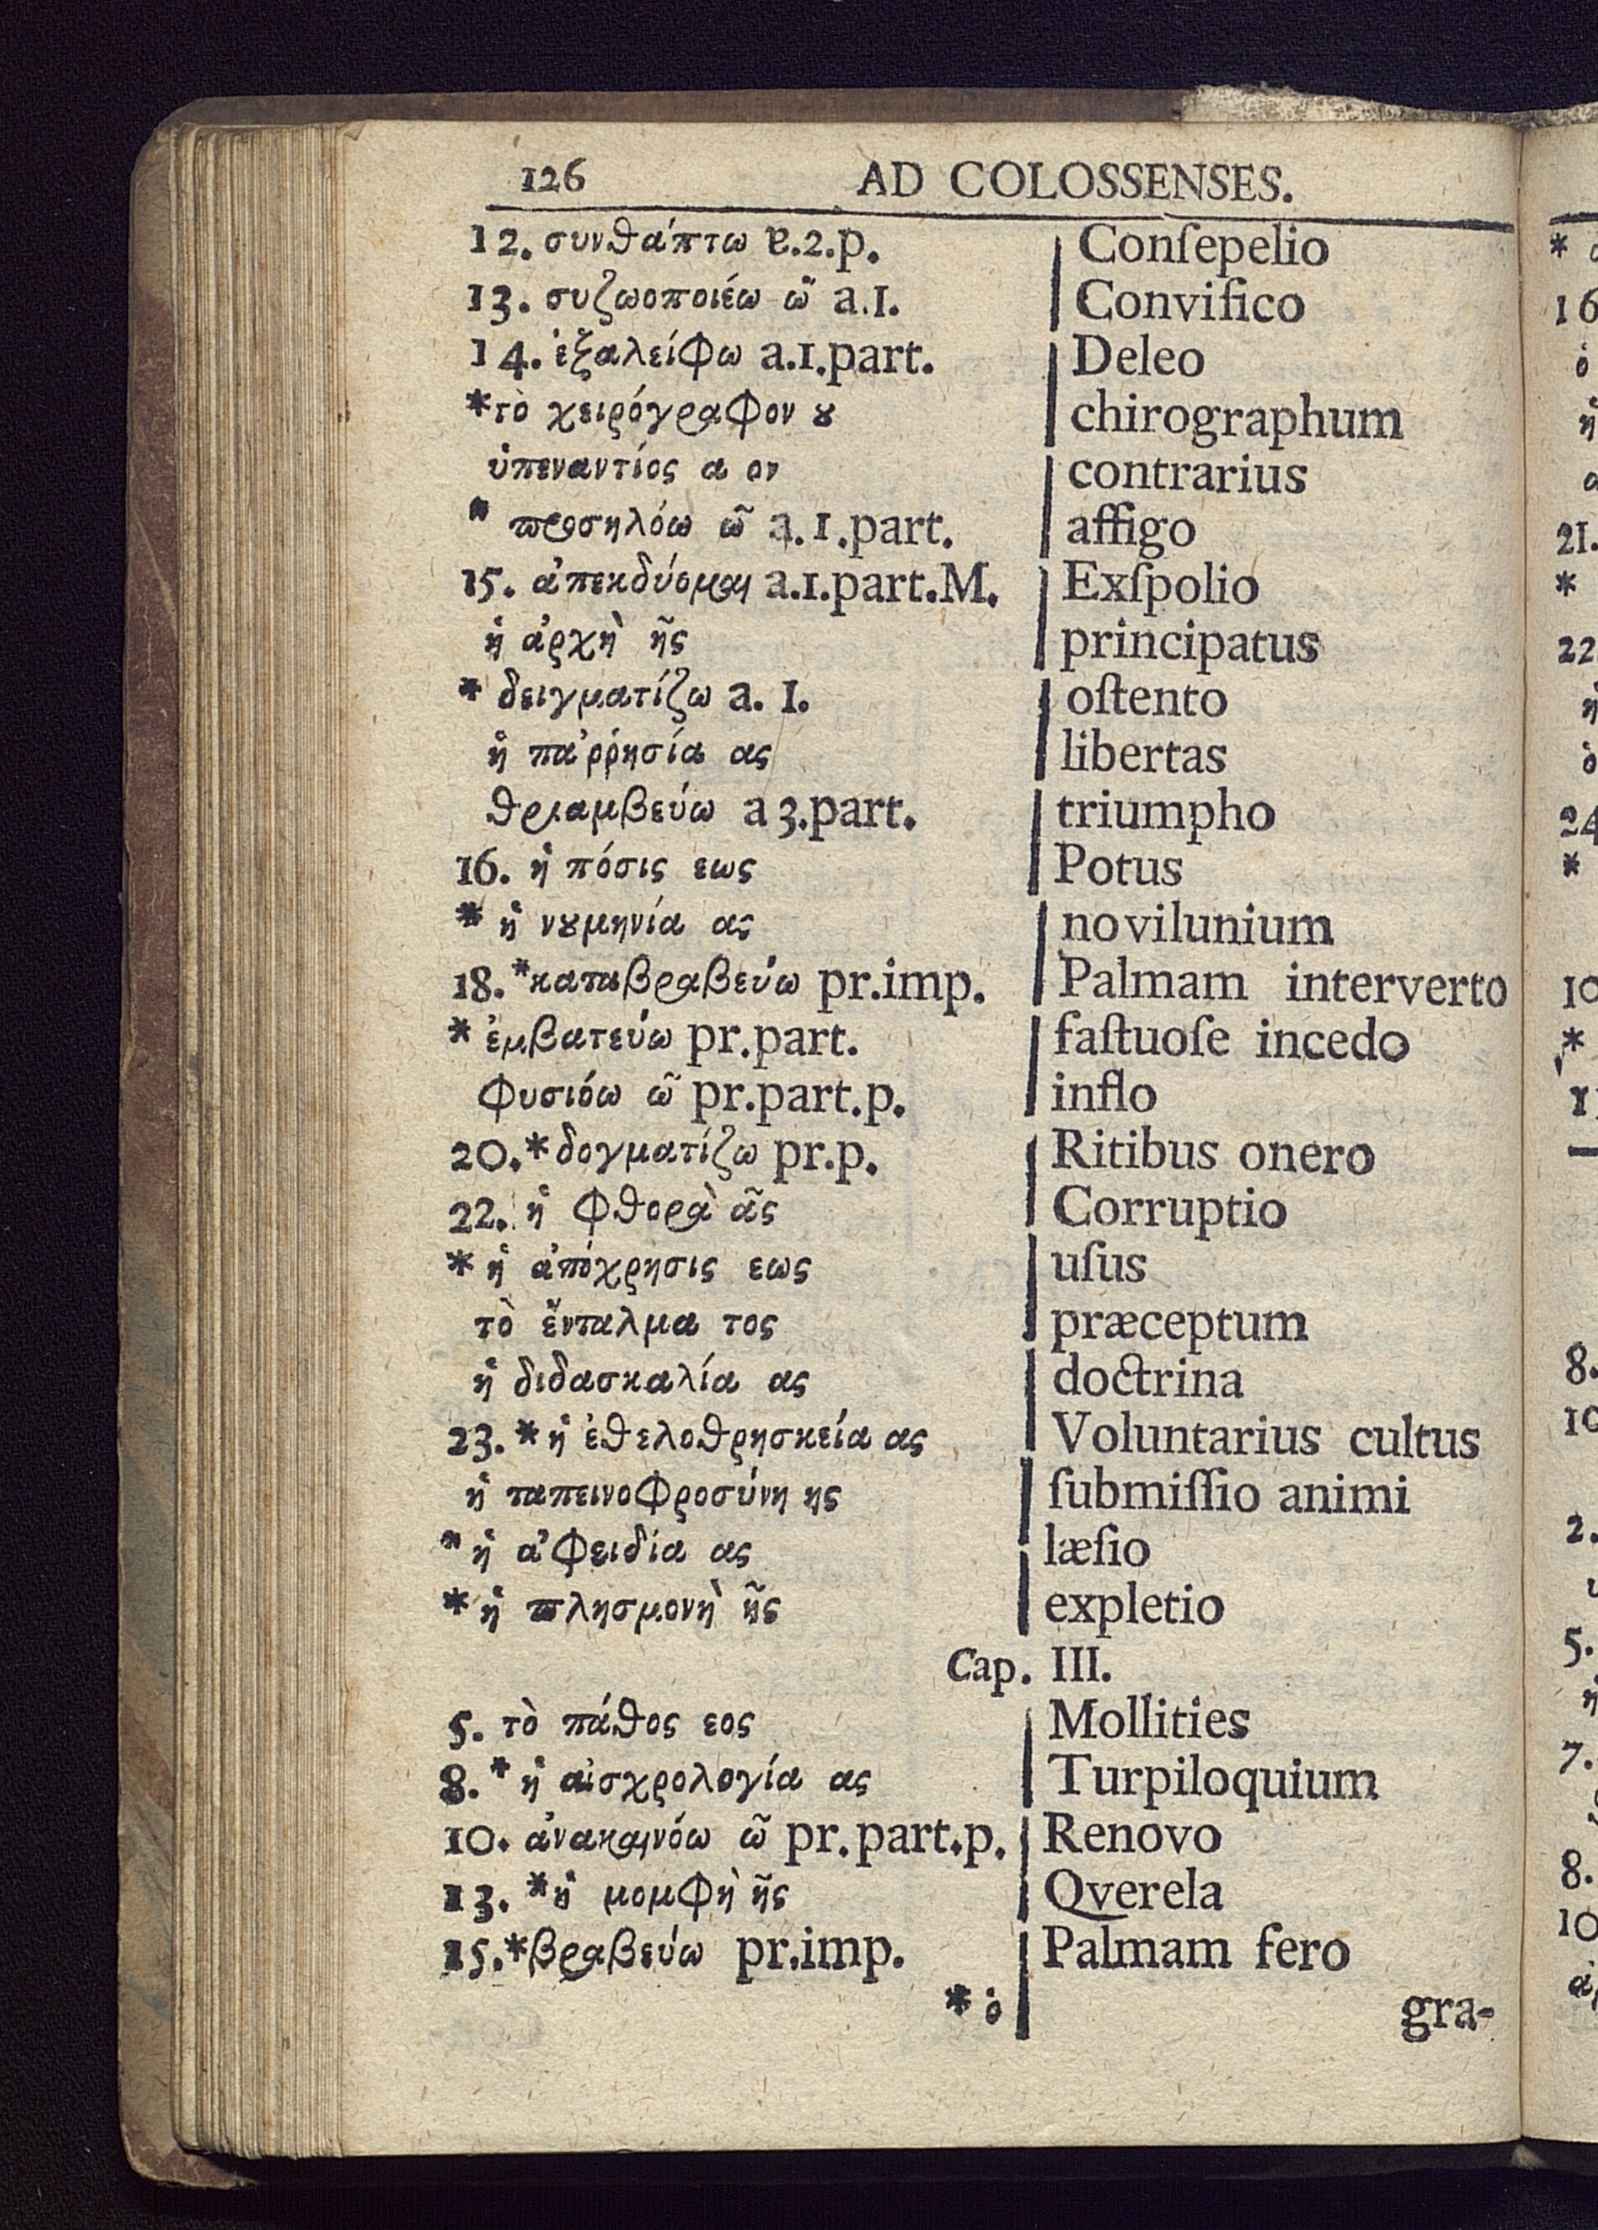 126 AD COLOSSENSES.
12. συνθάπτω a.2.p. Conſepelio
13. συζωοποιέω ῶ a.1. Convifico
14. ἐξαλείφω a.1.part. Deleo
*τὸ χειρόγραφον ȣ chirographum
ὑπεναντίος α ον contrarius
* προσηλόω ῶ a.1.part. affigo
15. ἀπεκδύομαι a.1.part.M. Exſpolio
ἡ ἀρχὴ ῆς principatus
* δειγματίζω a. 1. oſtento
ἡ παῤῥησία ας libertas
θριαμβεύω a 3.part. triumpho
16. ἡ πόσις εως Potus
* ἡ νȣμηνία ας novilunium
18.*καταβραβεύω pr.imp. Palmam interverto
* ἐμβατεύω pr.part. faſtuoſe incedo
φυσιόω ῶ pr.part.p. inflo
20.*δογματίζω pr.p. Ritibus onero
22. ἡ φθορὰ ᾶς Corruptio
* ἡ ἀπόχρησις εως uſus
τὸ ἔνταλμα τος præceptum
ἡ διδασκαλία ας doctrina
23. *ἡ ἐθελοθρησκεία ας Voluntarius cultus
ἡ ταπεινοφροσύνη ης ſubmiſſio animi
* ἡ ἀφειδία ας læſio
* ἡ πλησμονὴ ῆς expletio
Cap. III.
5. τὸ πάθος εος Mollities
8. * ἡ αἰσχρολογία ας Turpiloquium
10. ἀνακαινόω ῶ pr.part.p. Renovo
13. *ἡ μομφὴ ῆς Qverela
15.*βραβεύω pr.imp. Palmam fero
* ὁ gra-